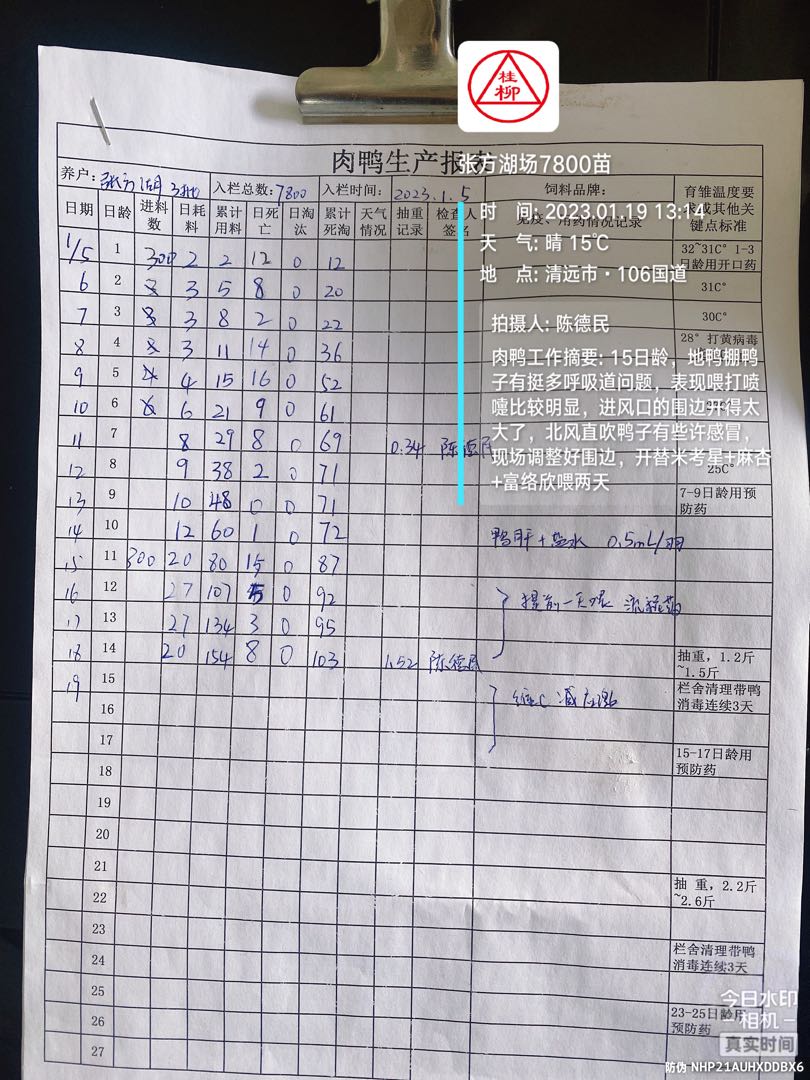 桂
柳
肉鸭生产报表
张方湖场7800苗
养户: 张方湖 入栏总数: 7800 入栏时间: 2023.1.5 饲料品牌:
日期 日龄 进料数 日耗料 累计用料 日死亡 日淘汰 累计死淘 天气情况 抽重记录 检查人签名 免疫、用药情况记录 育雏温度要求或其他关键点标准
时 间: 2023.01.19 13:14
天 气: 晴 15℃
地 点: 清远市·106国道
拍摄人: 陈德民
肉鸭工作摘要: 15日龄，地鸭棚鸭
子有挺多呼吸道问题，表现喂打喷
嚏比较明显，进风口的围边开得太
大了，北风直吹鸭子有些许感冒，
现场调整好围边，开替米考星+麻杏
+富络欣喂两天
1/5 1 300 2 2 12 0 12 32~31C° 1-3日龄用开口药
6 2 3 5 8 0 20 31C°
7 3 3 8 2 0 22 30C°
8 4 3 11 14 0 36 28° 打黄病毒
9 5 4 15 16 0 52
10 6 6 21 9 0 61
11 7 8 29 8 0 69 0.34 陈德民
12 8 9 38 2 0 71 25C°
13 9 10 48 0 0 71 7-9日龄用预防药
14 10 12 60 1 0 72 鸭肝+盐水 0.5mL/羽
15 11 300 20 80 15 0 87
16 12 27 107 5 0 92 提前一天喂 流程药
17 13 27 134 3 0 95
18 14 20 154 8 0 103 1.52 陈德民 抽重，1.2斤~1.5斤
19 15 维C 减应激 栏舍清理带鸭消毒连续3天
16
17 15-17日龄用预防药
18
19
20
21
22 抽 重，2.2斤~2.6斤
23
24 栏舍清理带鸭消毒连续3天
25
26 23-25日龄用预防药
27
今日水印
相机
真实时间
防伪 NHP21AUHXDDBX6